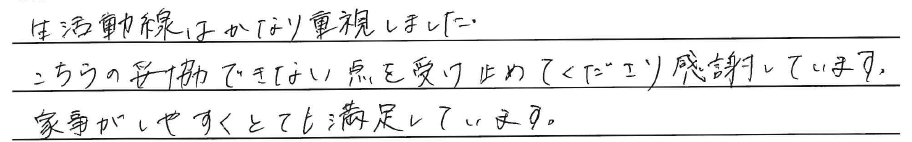 生活動線はかなり重視しました.
こちらの妥協できない点を受け止めてくださり感謝しています.
家事がしやすくとても満足しています。